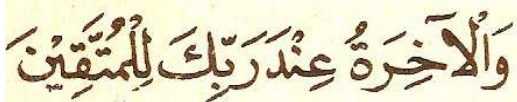 وَالْآخِرَةُ عِنْدَ رَبِّكَ لِلْمُتَّقِيْنَ